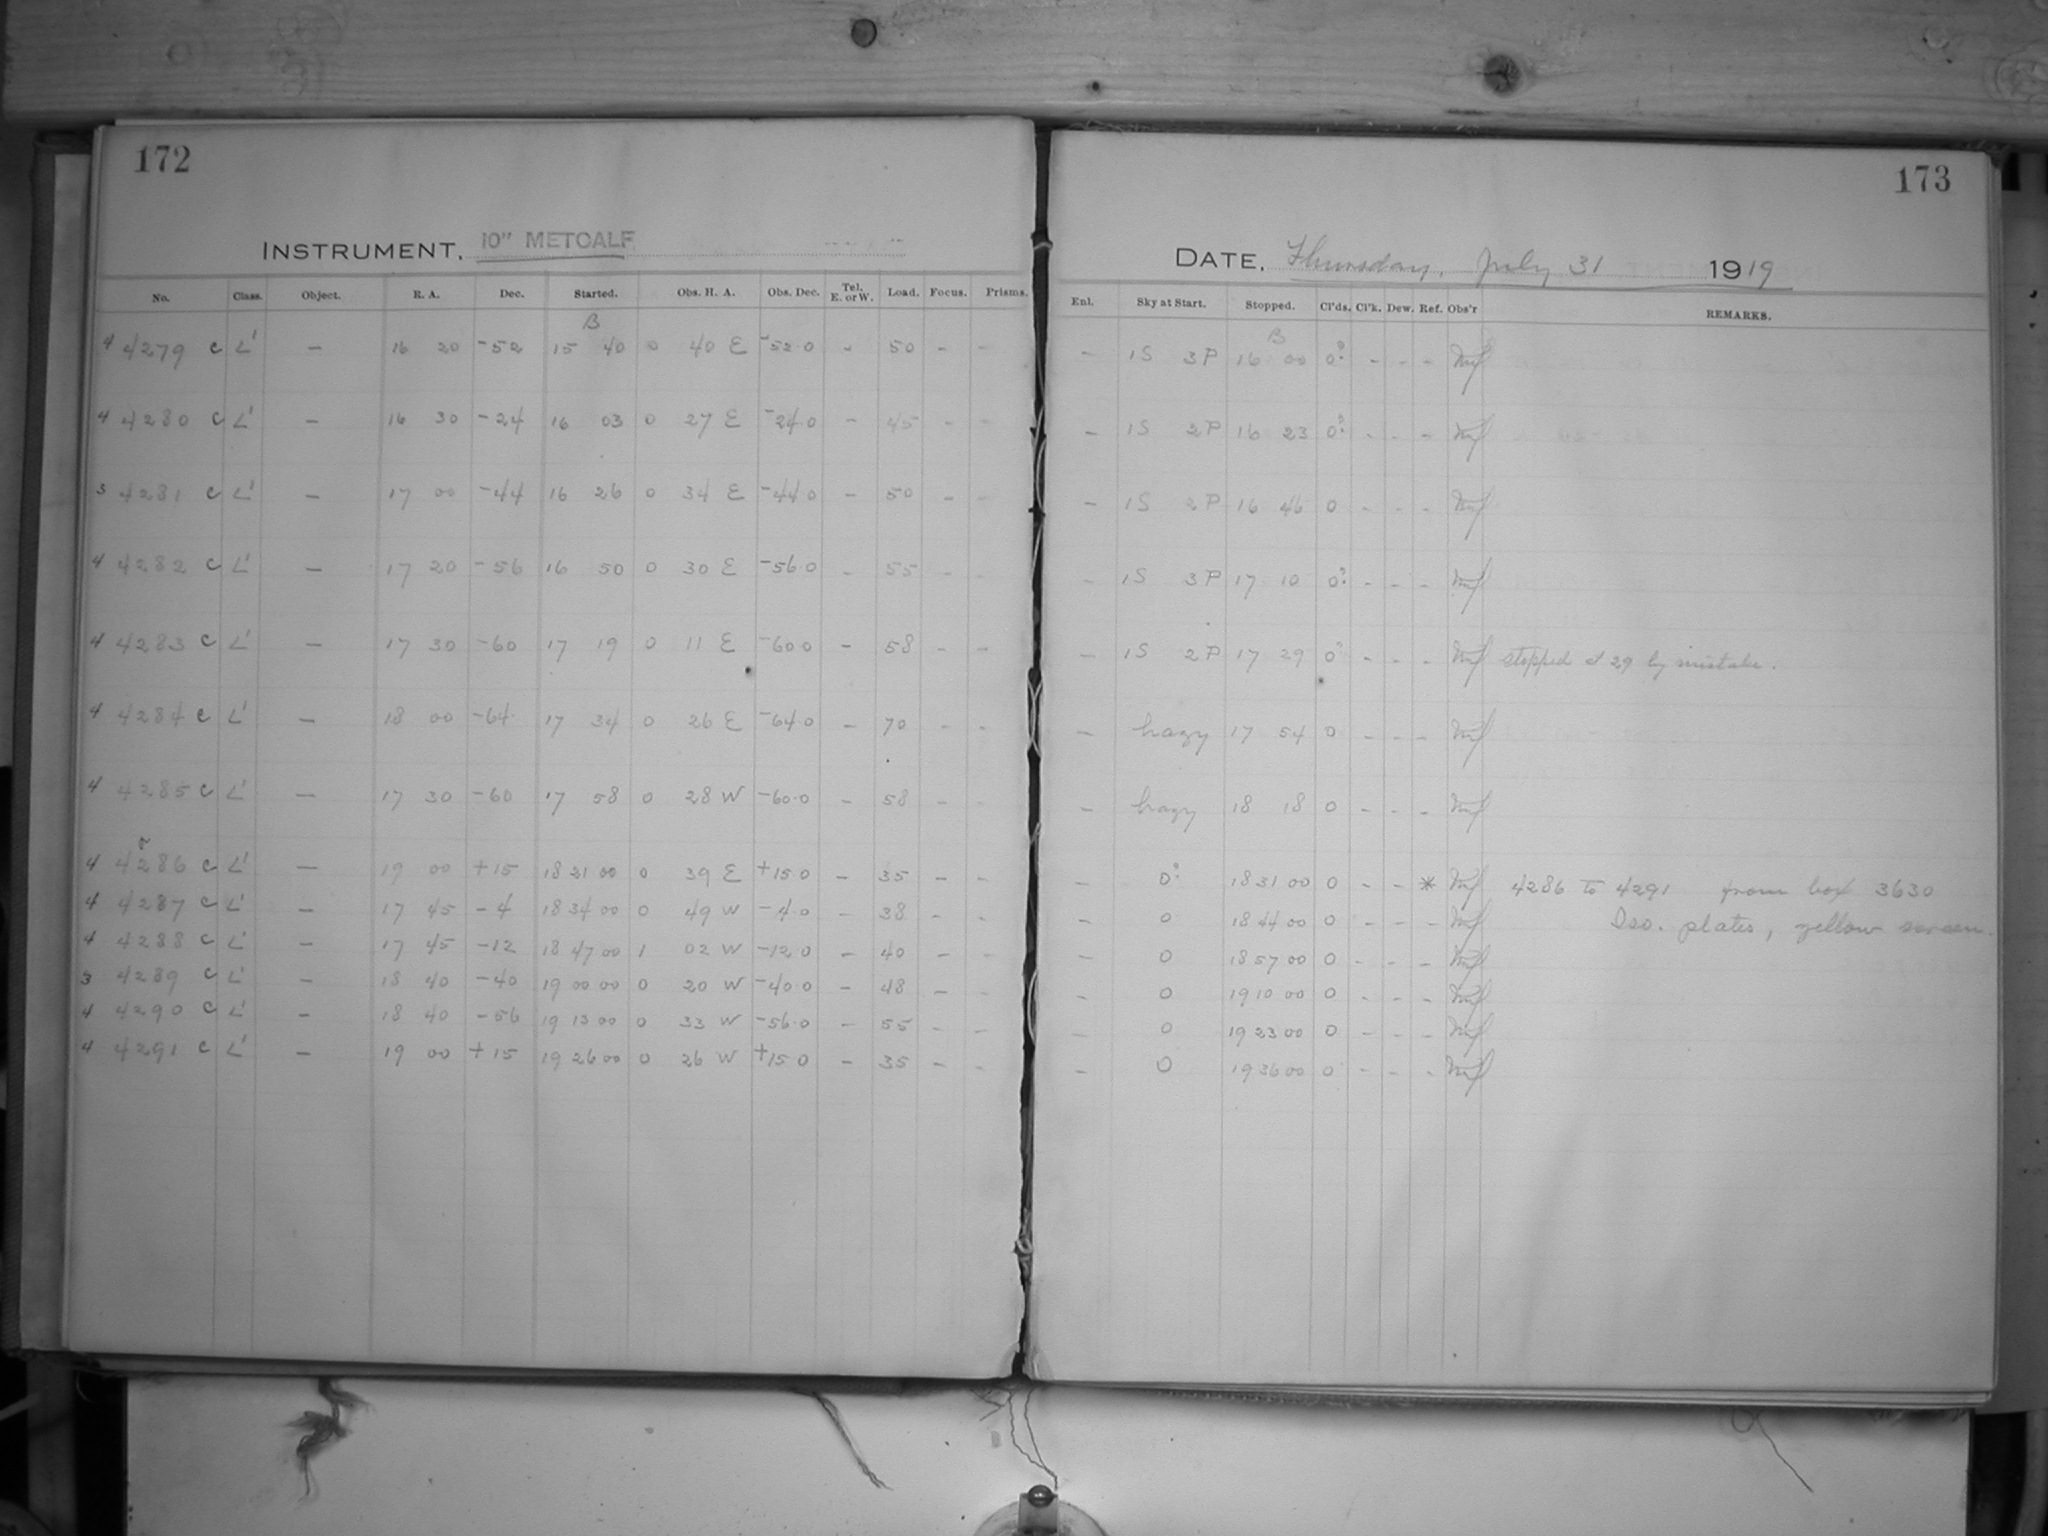 172
INSTRUMENT. 10" METCALF
No. Class. Object. R. A. Dec. Started. Obs. H. A. Obs. Dec. Tel. E. or W. Load. Focus. Prisms.
B
4 4279 c L' — 16 20 -52 15 40 0 40 E -52.0 - 50 - -
4 4280 c L' — 16 30 -24 16 03 0 27 E -24.0 - 45 - -
3 4281 c L' — 17 00 -44 16 26 0 34 E -44.0 - 50 - -
4 4282 c L' — 17 20 -56 16 50 0 30 E -56.0 - 55 - -
4 4283 c L' — 17 30 -60 17 19 0 11 E -60.0 - 58 - -
4 4284 c L' — 18 00 -64 17 34 0 26 E -64.0 - 70 - -
4 4285 c L' — 17 30 -60 17 58 0 28 W -60.0 - 58 - -
4 4286 c L' — 19 00 +15 18 21 00 0 39 E +15.0 - 35 - -
4 4287 c L' — 17 45 -4 18 34 00 0 49 W -4.0 - 38 - -
4 4288 c L' — 17 45 -12 18 47 00 1 02 W -12.0 - 40 - -
3 4289 c L' — 18 40 -40 19 00 00 0 20 W -40.0 - 48 - -
4 4290 c L' — 18 40 -56 19 13 00 0 33 W -56.0 - 55 - -
4 4291 c L' — 19 00 +15 19 26 00 0 26 W +15.0 - 35 - -
173
DATE. Thursday, July 31 1919
Enl. Sky at Start. Stopped. Cl'ds. Cl'k. Dew. Ref. Obs'r REMARKS.
B
- 1S 3P 16 00 0? - - -
- 1S 2P 16 23 0? - - -
- 1S 2P 16 46 0 - - -
- 1S 3P 17 10 0? - - -
- 1S 2P 17 29 0? - - - stopped at 29 by mistake.
- hazy 17 54 0 - - -
- hazy 18 18 0 - - -
- 0? 18 31 00 0 - - * 4286 to 4291 from box 3630
- 0 18 44 00 0 - - - Iso. plates, yellow screen.
- 0 18 57 00 0 - - -
- 0 19 10 00 0 - - -
- 0 19 23 00 0 - - -
- 0 19 36 00 0 - - -